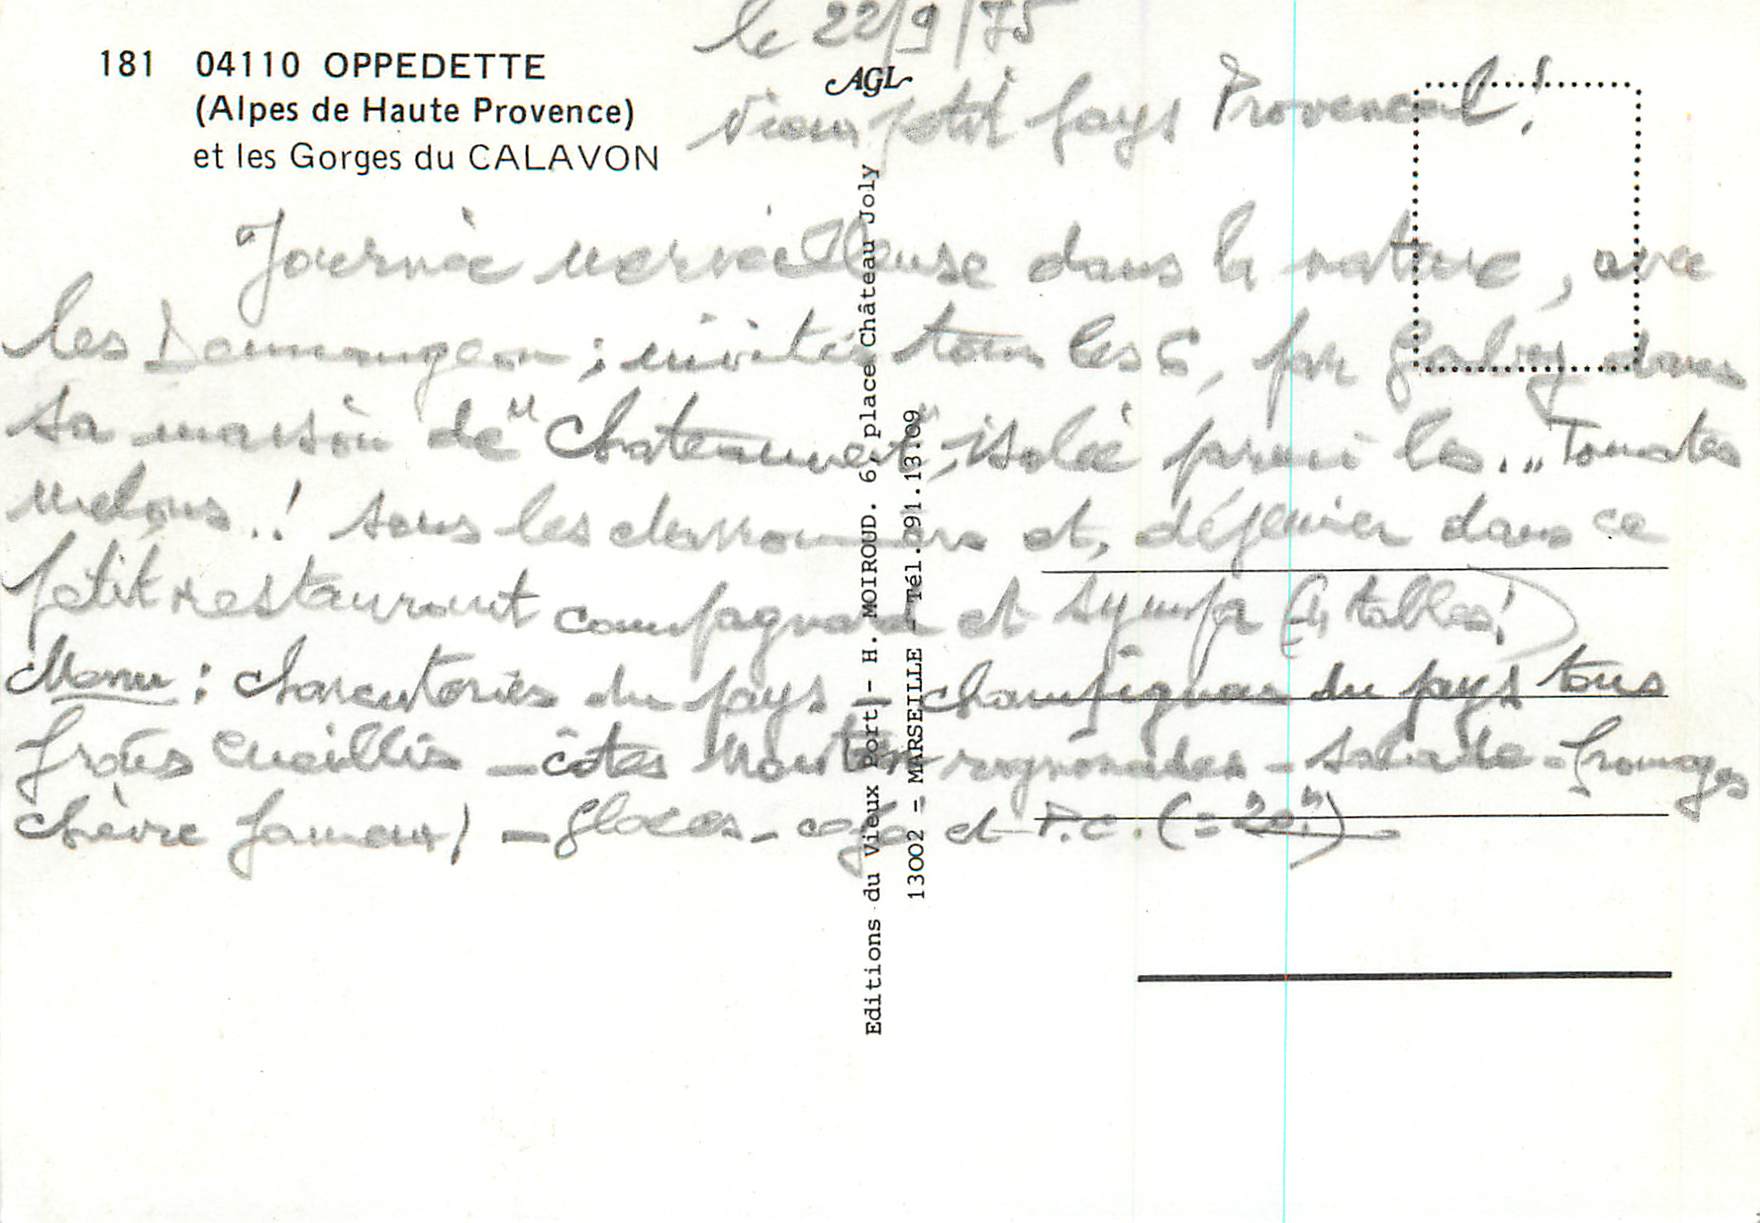 le 22/9/75
181 04110 OPPEDETTE
(Alpes de Haute Provence)
et les Gorges du CALAVON
AGL
Vieux petit pays Provencal !
Journée merveilleuse dans la nature, avec
les ; invités tous les 6, par Gaby dans
sa maison de "Chateauvert", isolée parmi les... Tomates
Melons..! sous les et, déjeuner dans ce
petit restaurant campagnard et sympa (4 tables!)
Menu : charcuteries du pays - champignons du pays tous
frais cueillis - côtes mouton rognonades - salade - fromages
chèvre fameux ! - Glaces - café et P.C. (= 20")
Editions du Vieux Port - H. MOIROUD. 6, place Château Joly
13002 - MARSEILLE - Tél. 91.13.09